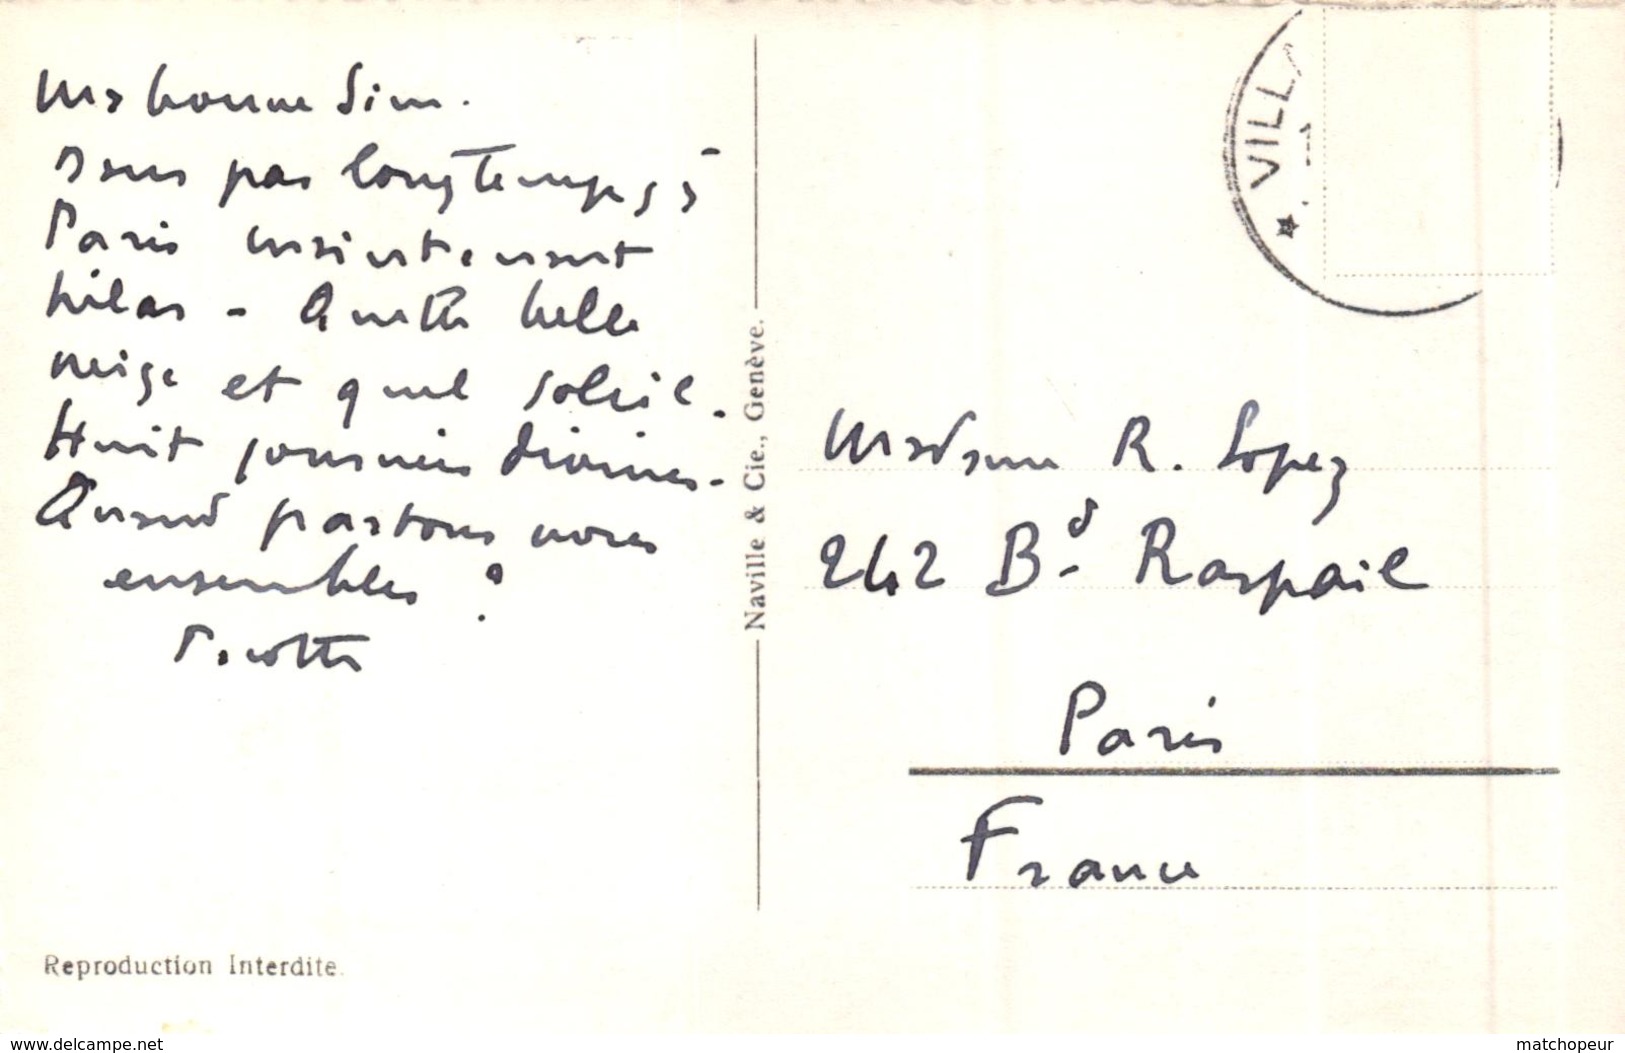 Ma bonne Sim.
Dans pas longtemps à
Paris maintenant
hélas - Quelle belle
neige et quel soleil.
Huit journées divines.
Quand partons nous
ensembles ?
Naville & Cie., Genève.
VILLA
Madame R. Lopez
242 Bd. Raspail
Paris
France
Reproduction Interdite.
www.delcampe.net
matchopeur